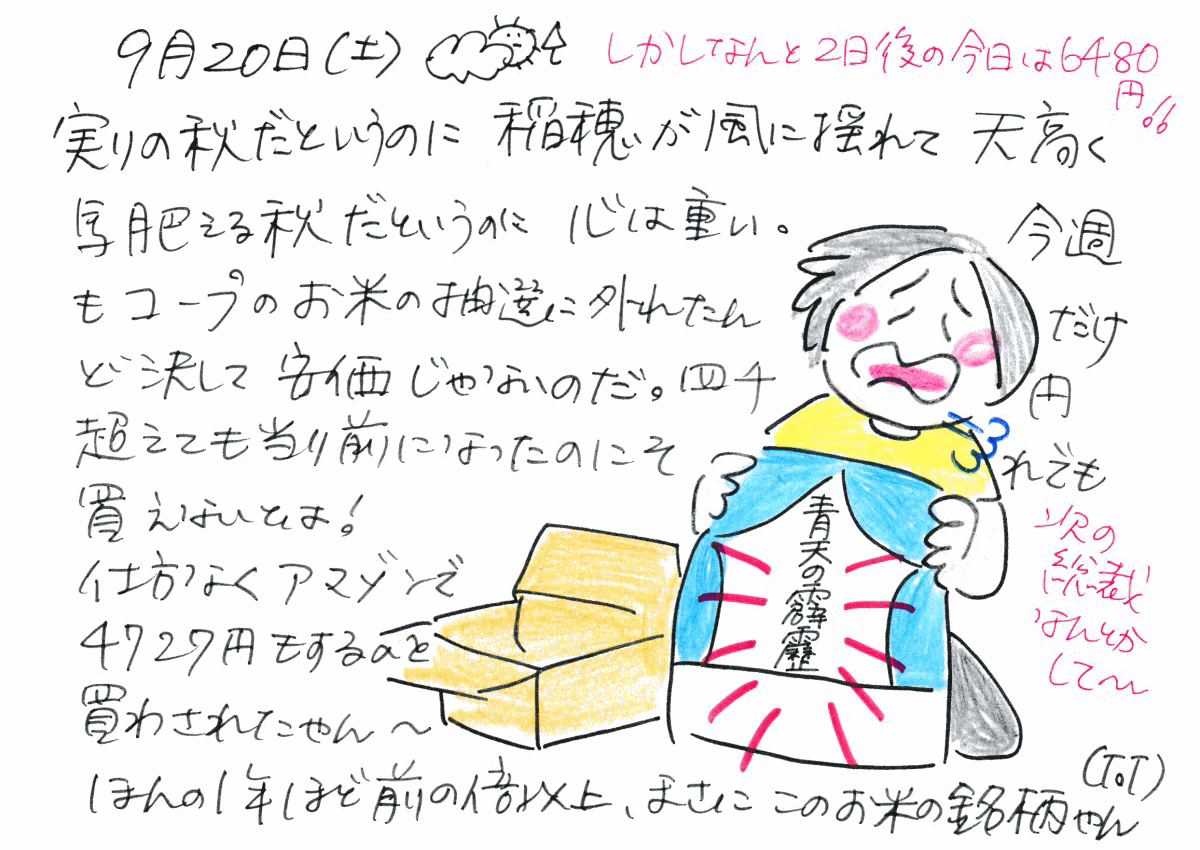 9月20日(土)
しかしなんと2日後の今日は6480
円!!
実りの秋だというのに 稲穂が風に揺れて 天高く
馬肥える秋だというのに 心は重い。 今週
もコープのお米の抽選に外れたん だけ
ど決して安価じゃないのだ。四千 円
超えても当り前になったのにそ れでも
買えないとは!
仕方なくアマゾンで
4727円もするのを
買わされたやん〜
ほんの1年ほど前の倍以上、まさにこのお米の銘柄やん
(ToT)
青天の霹靂
次の
総裁
なんとか
して〜